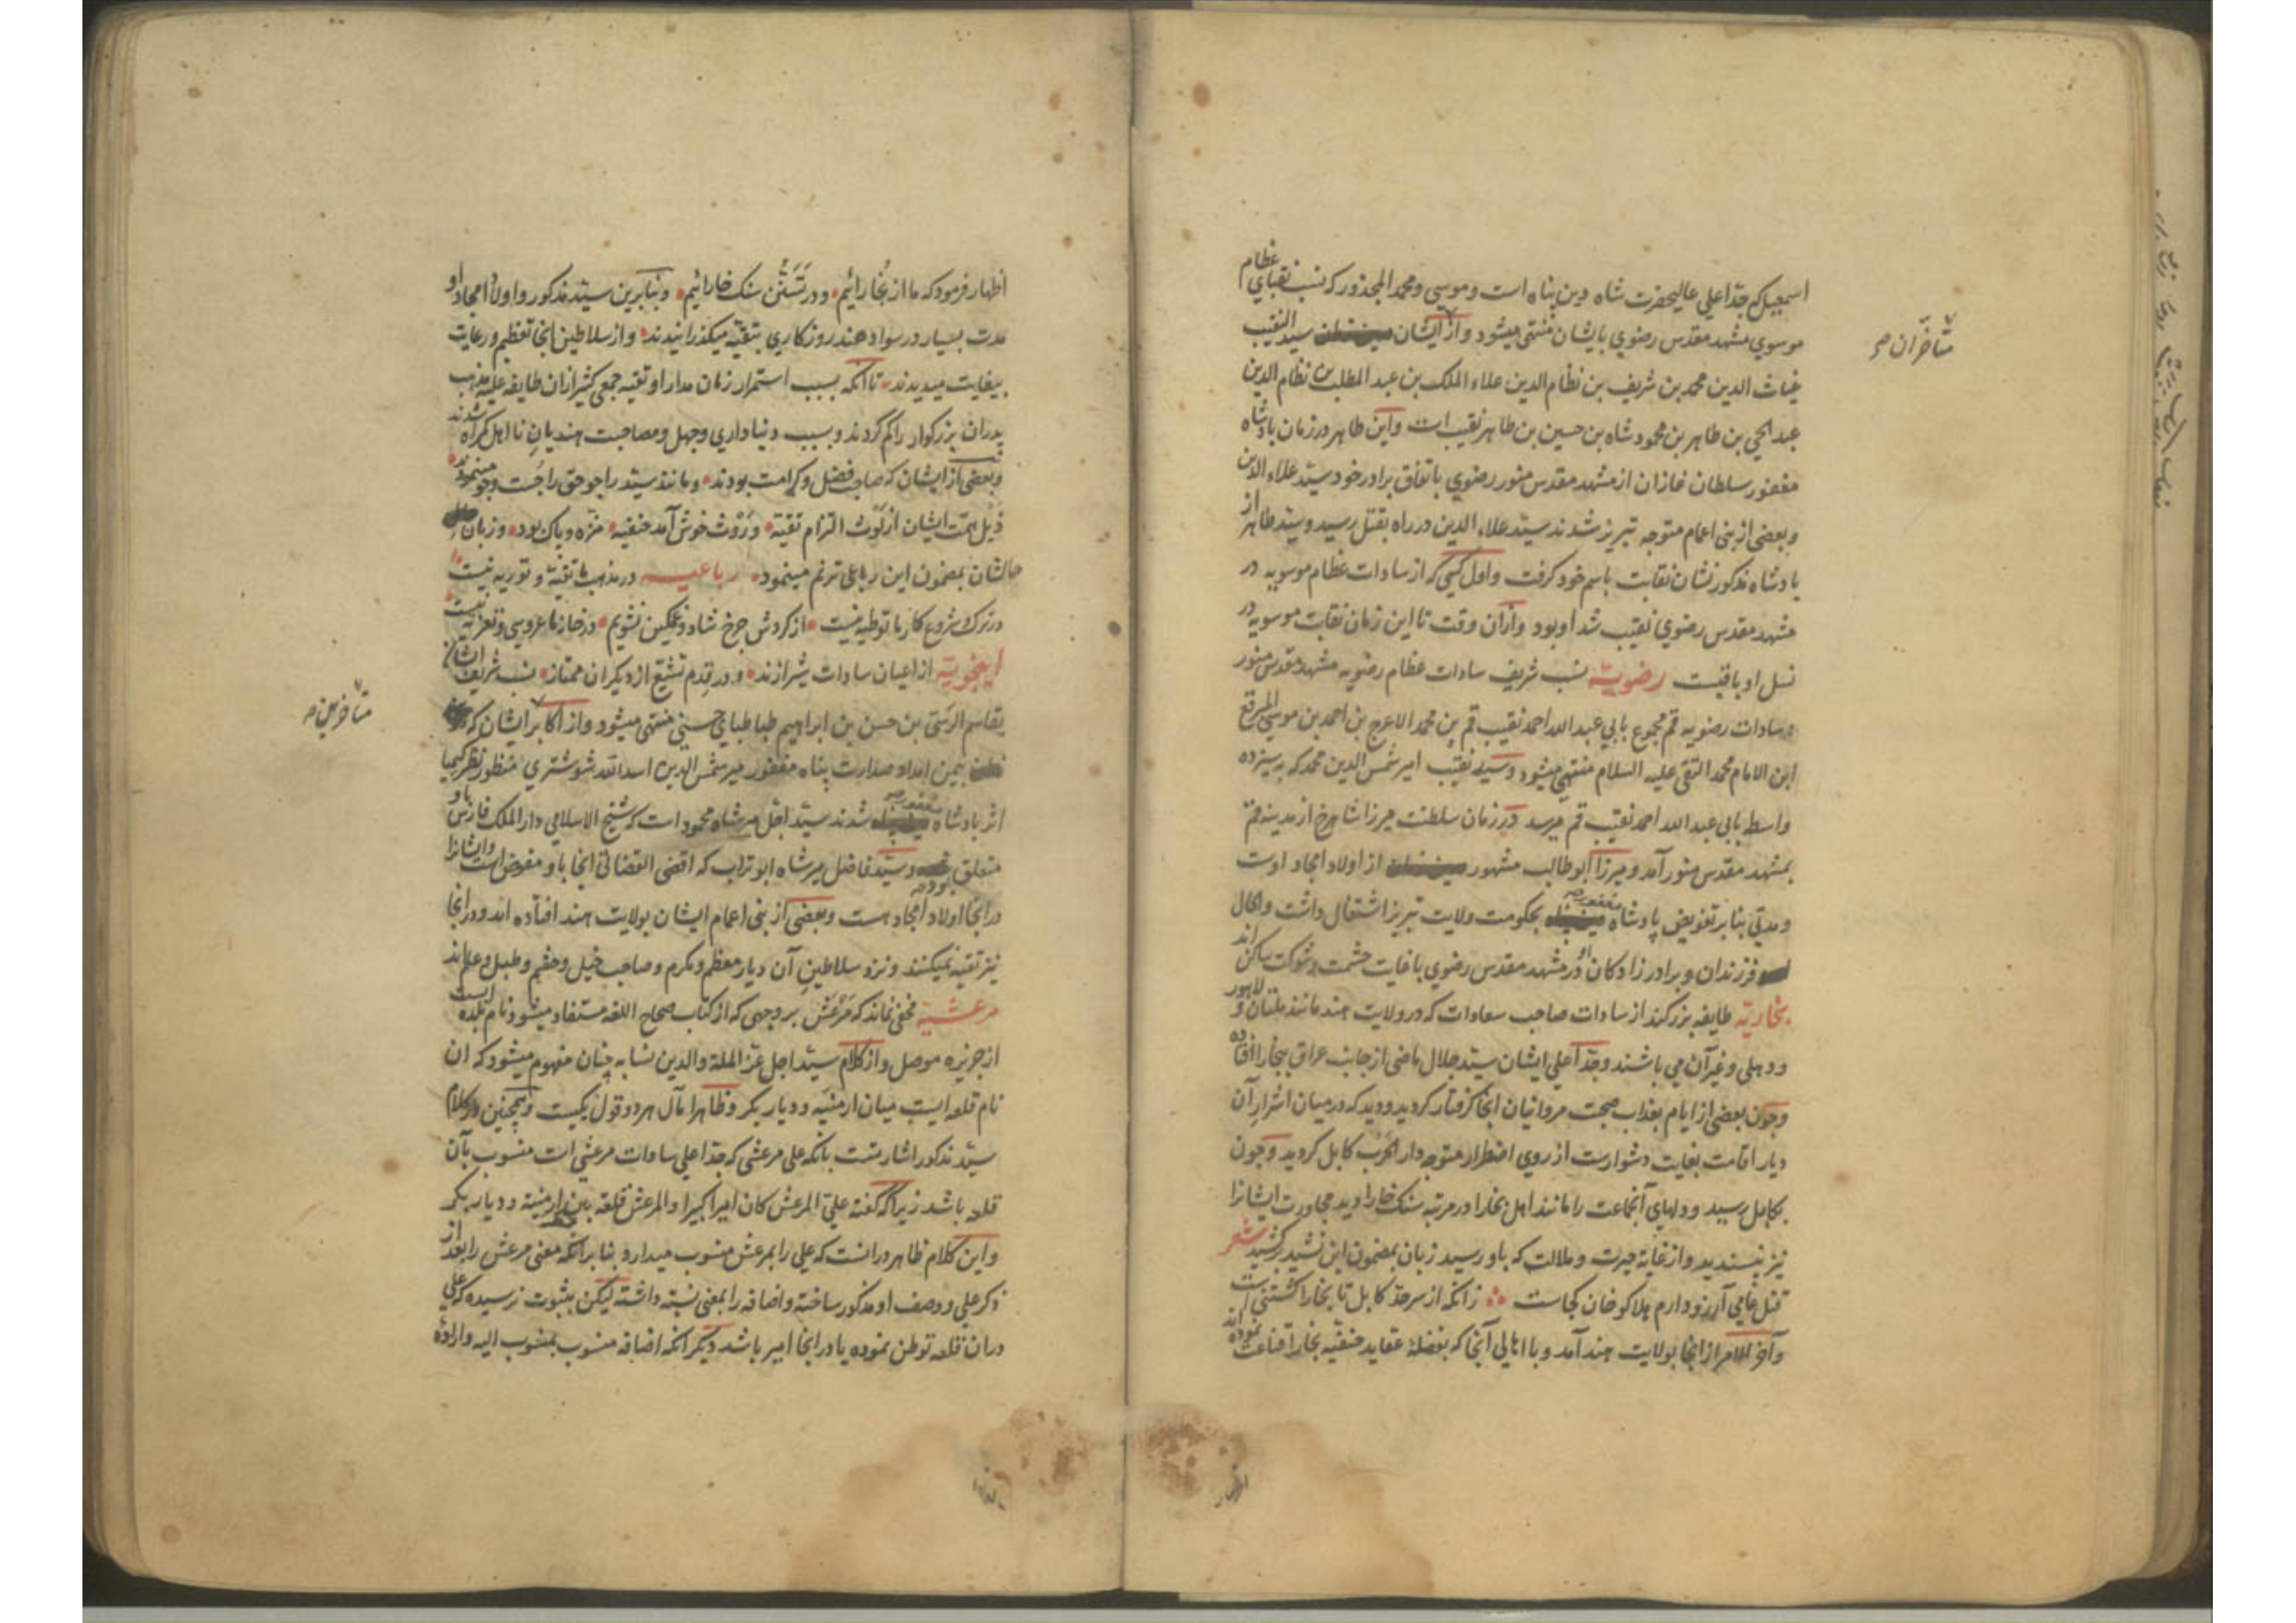 اسمعیل که جد اعلی عالیحضرت شاه دین پناه است و موسی و محمد المجذور که نسب نقبای عظام
موسوی مشهد مقدس رضوی بایشان منتهی میشود و از ایشان سید النقیب
متأخران صح
غیاث الدین محمد بن شریف بن نظام الدین علاء الملک بن عبد المطلب بن نظام الدین
عبد الحی بن طاهر بن محمود شاه بن حسین بن طاهر نقیب است و این طاهر در زمان پادشاه
مغفور سلطان غازان از مشهد مقدس منور رضوی باتفاق برادر خود سید علاء الدین
و بعضی از بنی اعمام متوجه تبریز شدند سید علاء الدین در راه بقتل رسید و سید طاهر از
پادشاه مذکور نشان نقابت باسم خود کرفت و اول کسی که از سادات عظام موسویه در
مشهد مقدس رضوی نقیب شد او بود و از ان وقت تا این زمان نقابت موسویه در
نسل او باقیست رضویه نسب شریف سادات عظام رضویه مشهد مقدس منور
و سادات رضویه قم مجموع بابی عبد الله احمد نقیب قم بن محمد الاعرج بن احمد بن موسی المبرقع
ابن الامام محمد التقی علیه السلام منتهی میشود و سید نقیب امیر شمس الدین محمد که بسیزده
واسطه بابی عبد الله احمد نقیب قم میرسد در زمان سلطنت میرزا شاهرخ از مدینه قم
بمشهد مقدس منور آمد و میرزا ابو طالب مشهور از اولاد امجاد اوست
و مدتی بنابر تفویض پادشاه مغفور صح بحکومت ولایت تبریز اشتغال داشت و الحال
فرزندان و برادر زادکان او در مشهد مقدس رضوی با غایت حشمت و شوکت ساکن اند
بخاریه طایفه بزرکند از سادات صاحب سعادات که در ولایت هند مانند ملتان و لاهور
و دهلی و غیر آن می باشند و جد اعلی ایشان سید جلال ماضی از جانب عراق ببخارا افتاده
و چون بعضی از ایام بعذاب صحبت مروانیان انجا کرفتار کردید و دید که در میان اشرار آن
دیار اقامت بغایت دشوارست از روی اضطرار متوجه دار الحرب کابل کردید و چون
بکابل رسید و دلهای آنجماعت را مانند اهل بخارا در مرتبه سنک خارا دید مجاورت ایشانرا
نیز نپسندید و از غایة حیرت و ملالت که باو رسید زبان بمضمون این نشید برکشید شعر
قتل عامی آرزو دارم هلاکو خان کجاست زانکه از سرحد کابل تا بخارا کشتنی است
و آخر الامر از انجا بولایت هند آمد و با اهالی آنجا که بفضلهٔ عقاید حنفیه بخارا قناعت نموده اند
اظهار
اظهار فرمود که ما از بخارائیم و در تسنن سنک خارائیم و بنابرین سید مذکور و اولاد امجاد او
مدت بسیار در سواد هند روزکاری بتقیه میکذرانیدند و از سلاطین انجا تعظیم و رعایت
بیغایت میدیدند تا انکه بسبب استمرار زمان مدار او تقیه جمعی کثیر از ان طایفه علیه مذهب
پدران بزرکوار را کم کردند و بسبب دنیاداری و جهل و مصاحبت هندیان نا اهل کمراه شدند
و بعضی از ایشان که صاحب فضل و کرامت بودند و مانند سید راجو حق را جست و جو مینمودند
ذیل همت ایشان از لوث التزام تقیه و روث خوش آمد حنفیه منزه و پاک بود و زبان
حالشان بمضمون این رباعی ترنم مینمود رباعیه در مذهب ما تقیه و توریه نیست
در ترک و شروع کار ما توطیه نیست از کردش چرخ شاد و غمکین نشویم در خانه ما عروسی و تعزیه نیست
اینجویه از اعیان سادات شیرازند و در قدم تشیع از دیکران ممتاز نسب شریف ایشان
بقاسم الرسی بن حسن بن ابراهیم طباطبای حسنی منتهی میشود و از اکابر ایشان که
متأخرین صح
بیمن امداد صدارت پناه مغفور میر شمس الدین اسد الله شوشتری منظور نظر کیمیا
اثر پادشاه مغفور صح شدند سید اجل میر شاه محمود است که شیخ الاسلامی دار الملک فارس باو
متعلق بود صح و سید فاضل میر شاه ابو تراب که اقضی القضاتی انجا باو مفوض است و ایشانرا
در انجا اولاد امجاد هست و بعضی از بنی اعمام ایشان بولایت هند افتاده اند و در انجا
نیز تقیه نمیکنند و نزد سلاطین آن دیار معظم و مکرم و صاحب خیل و حشم و طبل و علم اند
مرعشیه مخفی نماند که مرعش بر وجهی که از کتاب صحاح اللغه مستفاد میشود نام بلده ایست
از جزیره موصل و از کلام سید اجل عز الملة والدین نسابه چنان مفهوم میشود که ان
نام قلعه ایست میان ارمنیه و دیار بکر و ظاهرا مآل هر دو قول یکیست و همچنین در کلام
سید مذکور اشارتست بانکه علی مرعشی که جد اعلی سادات مرعشی است منسوب بآن
قلعه باشد زیرا که کفته علی المرعش کان امیرا کبیرا والمرعش قلعة بین ارمنیة و دیار بکر
و این کلام ظاهر در انست که علی را بمرعش منسوب میدارد بنا برانکه معنی مرعش را بعد از
ذکر علی و وصف او مذکور ساخته و اضافه را بمعنی نسبة داشته لیکن بثبوت نرسیده که علی
در ان قلعه توطن نموده یا در انجا امیر باشد دیکر انکه اضافه منسوب بمنسوب الیه و ارادهٔ